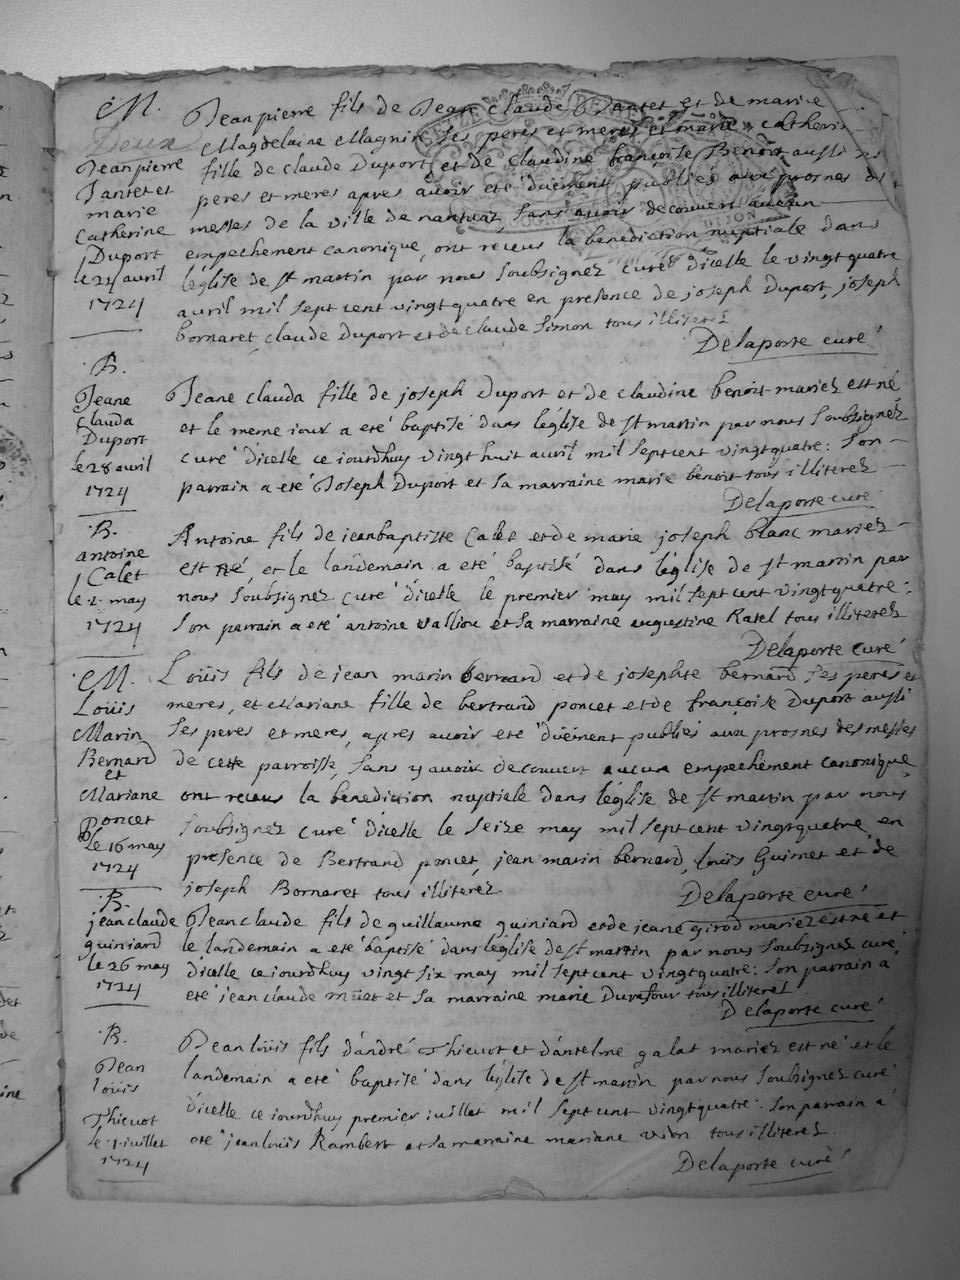 M.
Jeanpierre
Jantet et
marie
Catherine
Duport
le 24 avril
1724
Jeanpierre fils de Jean claude Jantet et de marie
Magdelaine Magnin ses peres et meres et marie catherine
fille de claude Duport et de claudine françoise Benoit aussi ses
peres et meres apres avoir eté düement publiés aux prosnes des
messes de la ville de nantua, sans avoir decouvert aucun
empechement canonique, ont receus la benediction nuptiale dans
léglise de st martin par nous soubsignez curé d'icelle le vingtquatre
avril mil sept cent vingtquatre en presence de joseph Duport, joseph
bornaret, claude duport et de claude simon tous illiterez
Delaporte curé
B.
Jeane
clauda
Duport
le 28 avril
1724
Jeane clauda fille de joseph Duport et de claudine benoit mariez est né
et le meme jour a eté baptisé dans léglise de st martin par nous soubsignéz
curé d'icelle ce jourdhuy vingt huit avril mil sept cent vingtquatre: son
parrain a eté Joseph Duport et sa marraine marie benoit tous illiterez
Delaporte curé
B.
antoine
Calet
le 1. may
1724
Antoine fils de jeanbaptiste Calet et de marie joseph blanc mariez
est né, et le landemain a eté baptisé dans léglise de st martin par
nous soubsignez curé d'icelle le premier may mil sept cent vingtquatre:
son parrain a eté antoine valliou et sa marraine augustine Ratel tous illiterez
Delaporte curé
M.
Loüis
Marin
Bernard
et
Mariane
poncet
le 16 may
1724
Loüis fils de jean marin bernard et de josephte bernard ses peres et
meres, et Mariane fille de bertrand poncet et de françoise Duport aussi
ses peres et meres, apres avoir eté düement publiés aux prosnes des messes
de cette parroisse, sans y avoir decouvert aucun empechement canonique
ont receus la benediction nuptiale dans léglise de st martin par nous
soubsignez curé d'icelle le seize may mil sept cent vingtquatre en
presence de Bertrand poncet, jean marin bernard, loüis Guimet et de
joseph Bornaret tous illiterez
Delaporte curé
B.
jean claude
guiniard
le 26 may
1724
Jean claude fils de guillaume guiniard et de jeane girod mariez est né et
le landemain a eté baptisé dans léglise de st martin par nous soubsignez curé
d'icelle ce jourdhuy vingt six may mil sept cent vingtquatre: son parrain a
eté jean claude et sa marraine marie Durafour tous illiterez
Delaporte curé
B.
Jean
loüis
Thievot
le 1. juillet
1724
Jean loüis fils d'andré Thievot et d'antelme galat mariez est né et le
landemain a eté baptisé dans léglise de st martin par nous soubsignez curé
d'icelle ce jourdhuy premier juillet mil sept cent vingtquatre: son parrain a
eté jean loüis Rambert et sa marraine mariane tous illiterez
Delaporte curé